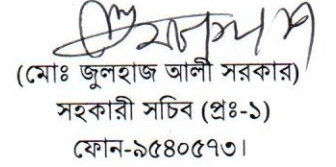 (মোঃ জুলহাজ আলী সরকার)
সহকারী সচিব (প্রঃ-১)
ফোন-৯৫৪০৫৭৩।